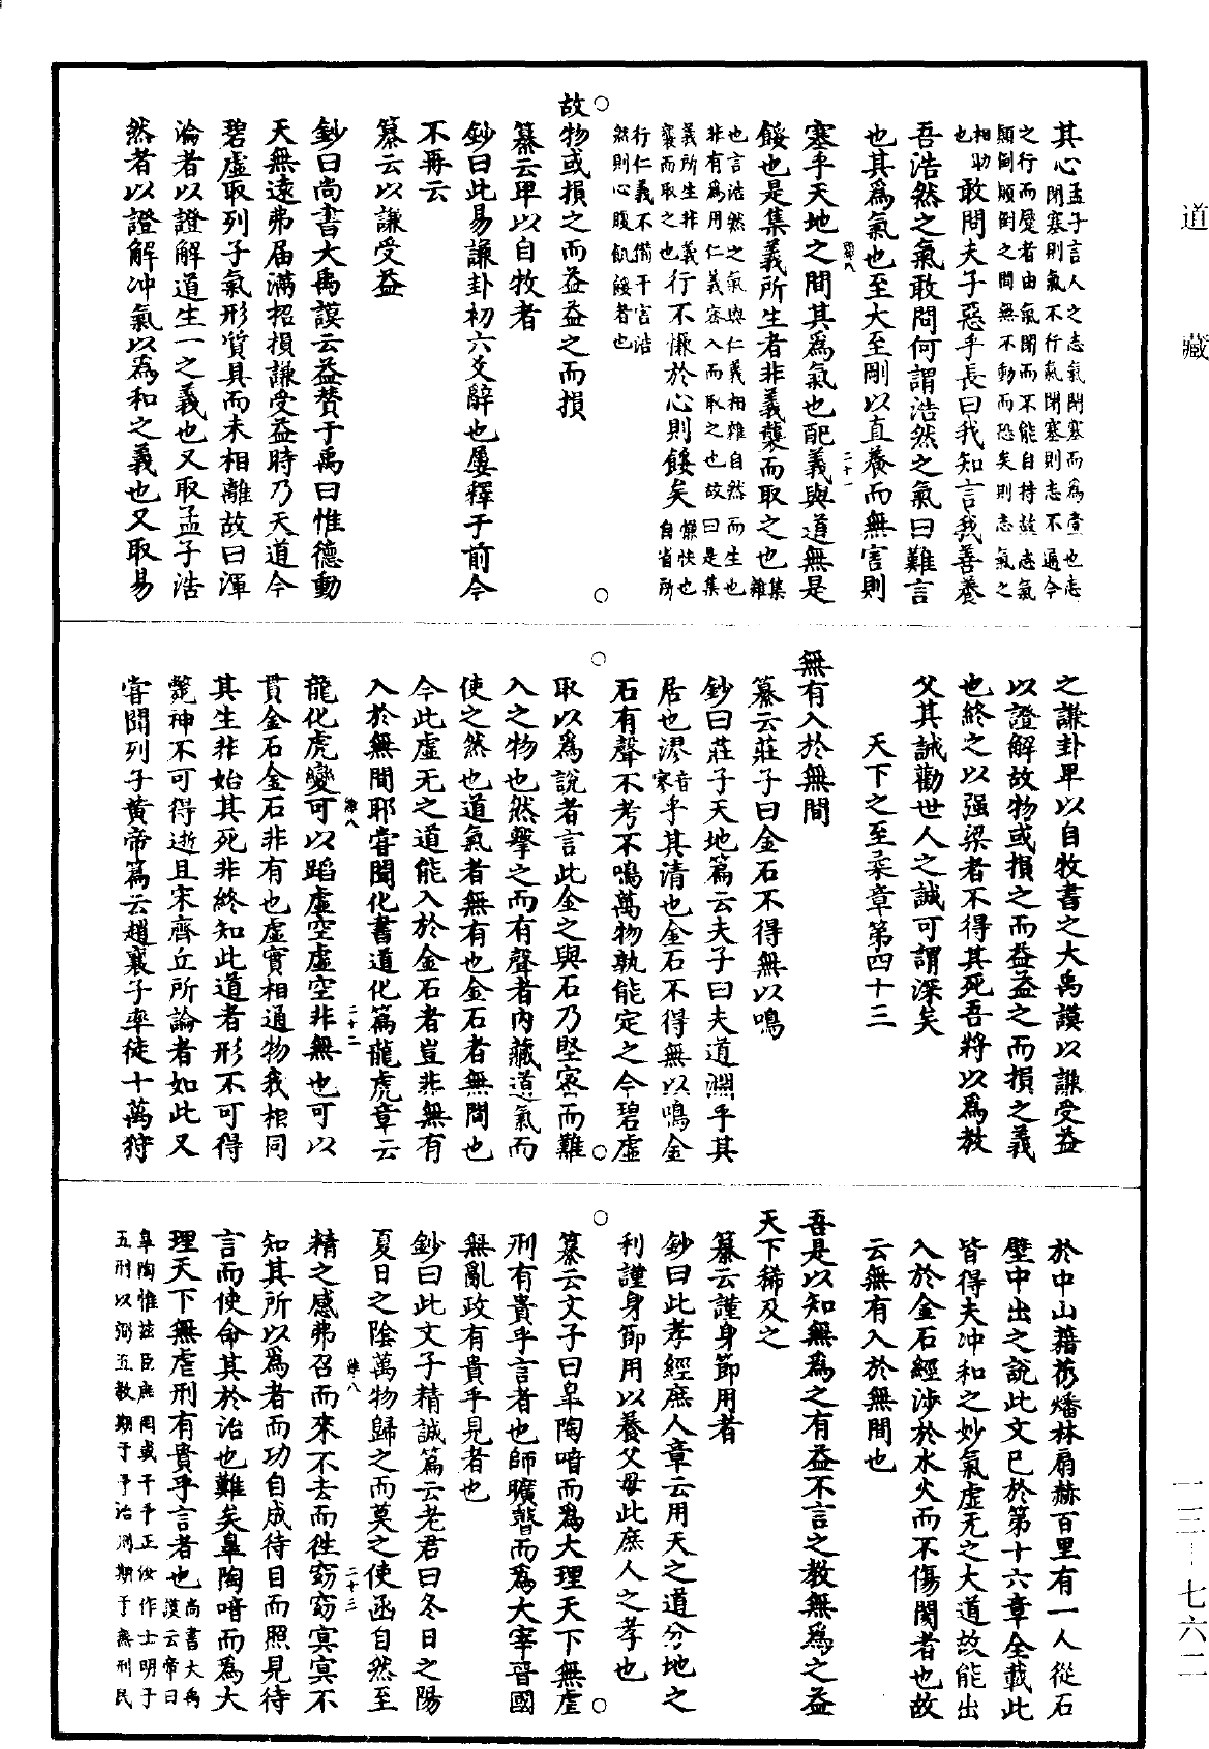 道藏
其心孟子言人之志氣閉塞而爲壹也志
閉塞則氣不行氣閉塞則志不通今
之行而蹷者由氣閉而不能自持故志氣
顛倒顛倒之間無不動而恐矣則志氣之
相動也敢問夫子惡乎長曰我知言我善養
吾浩然之氣敢問何謂浩然之氣曰難言
也其爲氣也至大至剛以直養而無害則
塞乎天地之間其爲氣也配義與道無是
餒也是集義所生者非義襲而取之也集雜
也言浩然之氣與仁義相雜自然而生也
非有爲用仁義密入而取之也故曰是集
義所生非義襲而取之也行不慊於心則餒矣慊快也自省所
行仁義不備干害浩
然則心腹飢餒者也
故物或損之而益益之而損
纂云卑以自牧者
鈔曰此易謙卦初六爻辭也屢釋于前今
不再云
纂云以謙受益
鈔曰尚書大禹謨云益贊于禹曰惟德動
天無遠弗届滿招損謙受益時乃天道今
碧虛取列子氣形質具而未相離故曰渾
淪者以證解道生一之義也又取孟子浩
然者以證解冲氣以為和之義也又取易
之謙卦卑以自牧書之大禹謨以謙受益
以證解故物或損之而益益之而損之義
也終之以强梁者不得其死吾將以爲教
父其誡勸世人之誠可謂深矣
天下之至柔章第四十三
無有入於無間
纂云莊子曰金石不得無以鳴
鈔曰莊子天地篇云夫子曰夫道淵乎其
居也漻音寥乎其清也金石不得無以鳴金
石有聲不考不鳴萬物孰能定之今碧虛
取以爲說者言此金之與石乃堅密而難
入之物也然擊之而有聲者内藏道氣而
使之然也道氣者無有也金石者無間也
今此虛无之道能入於金石者豈非無有
入於無間耶嘗聞化書道化篇龍虎章云
龍化虎變可以蹈虛空虛空非無也可以
貫金石金石非有也虛實相通物我相同
其生非始其死非終知此道者形不可得
斃神不可得逝且宋齊丘所論者如此又
嘗聞列子黄帝篇云趙襄子率徒十萬狩
於中山藉芿燔林扇赫百里有一人從石
壁中出之說此文已於第十六章全載此
皆得夫冲和之妙氣虛无之大道故能出
入於金石經涉於水火而不傷閡者也故
云無有入於無間也
吾是以知無為之有益不言之教無為之益
天下稀及之
纂云謹身節用者
鈔曰此孝經庶人章云用天之道分地之
利謹身節用以養父母此庶人之孝也
纂云文子曰皐陶喑而爲大理天下無虐
刑有貴乎言者也師曠瞽而爲大宰晉國
無亂政有貴乎見者也
鈔曰此文子精誠篇云老君曰冬日之陽
夏日之陰萬物歸之而莫之使函自然至
精之感弗召而來不去而徃窈窈冥冥不
知其所以爲者而功自成待目而照見待
言而使命其於治也難矣皐陶喑而爲大
理天下無虐刑有貴乎言者也尚書大禹謨云帝曰
皐陶惟兹臣庶罔或干予正汝作士明于
五刑以弼五教期于予治刑期于無刑民
難八
二十一
難八
二十二
難八
二十三
一三—七六二